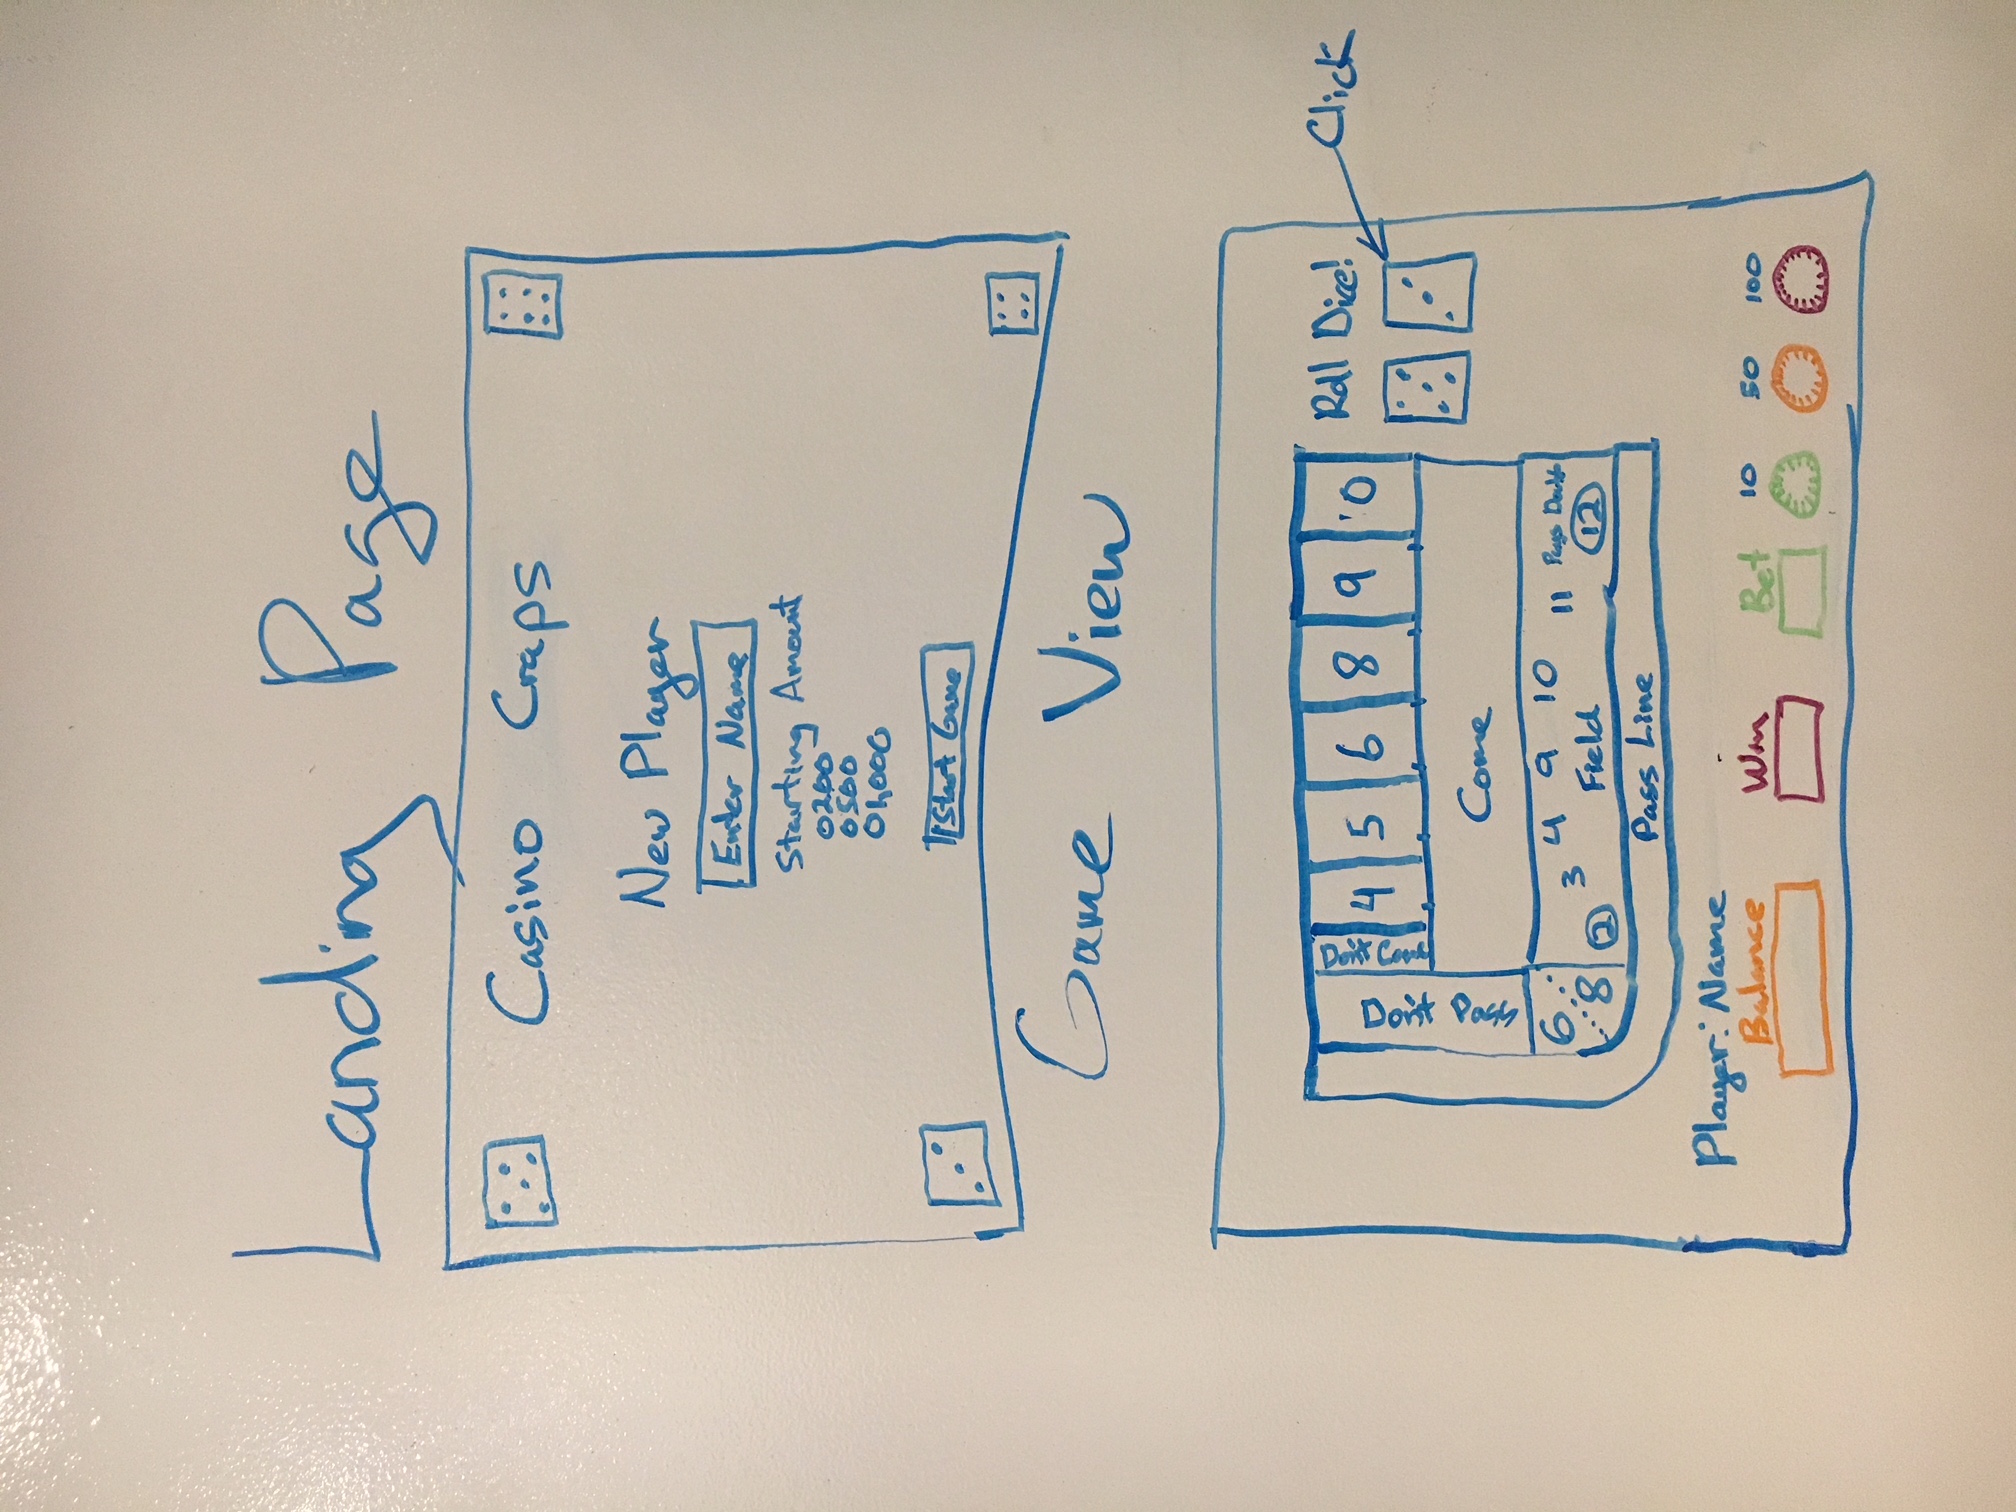 Landing Page
Casino Craps
New Player
Enter Name
Starting Amount
200
500
1,000
Start Game
Game View
Click
Roll Dice!
Don't Come
4 5 6 8 9 10
Don't Pass
Come
6 8
2 3 4 9 10 11 12
Field
Pass Line
Player: Name
Balance
Win
Bet
10
50
100